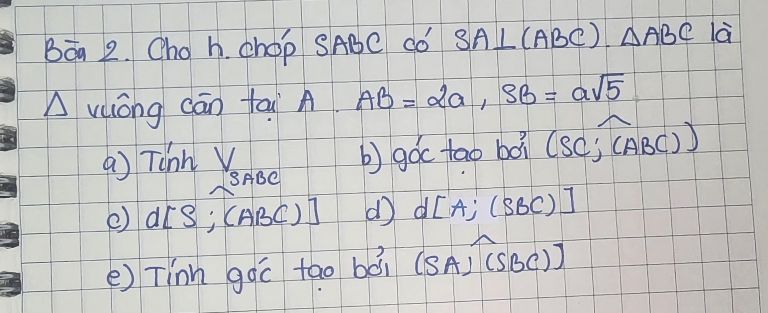 Bài 2. Cho h. chóp SABC có SA⊥(ABC). ΔABC là
Δ vuông cân tại A. AB = 2a, SB = a√5
a) Tính V_SABC b) góc tạo bởi (SC; (ABC))
c) d[S; (ABC)] d) d[A; (SBC)]
e) Tính góc tạo bởi (SA; (SBC)]